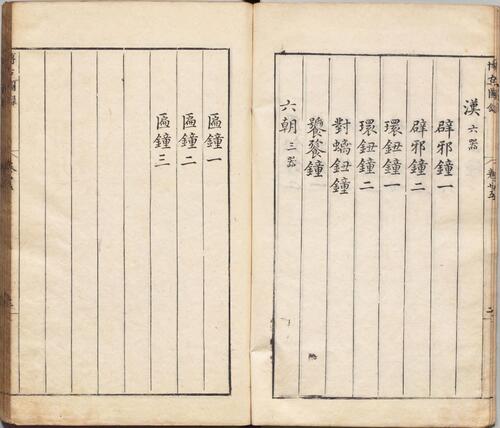 博古圖
卷廿五
二
漢 六器
辟邪鐘一
辟邪鐘二
環鈕鐘一
環鈕鐘二
對螭鈕鐘
饕餮鐘
六朝 三器
匾鐘一
匾鐘二
匾鐘三